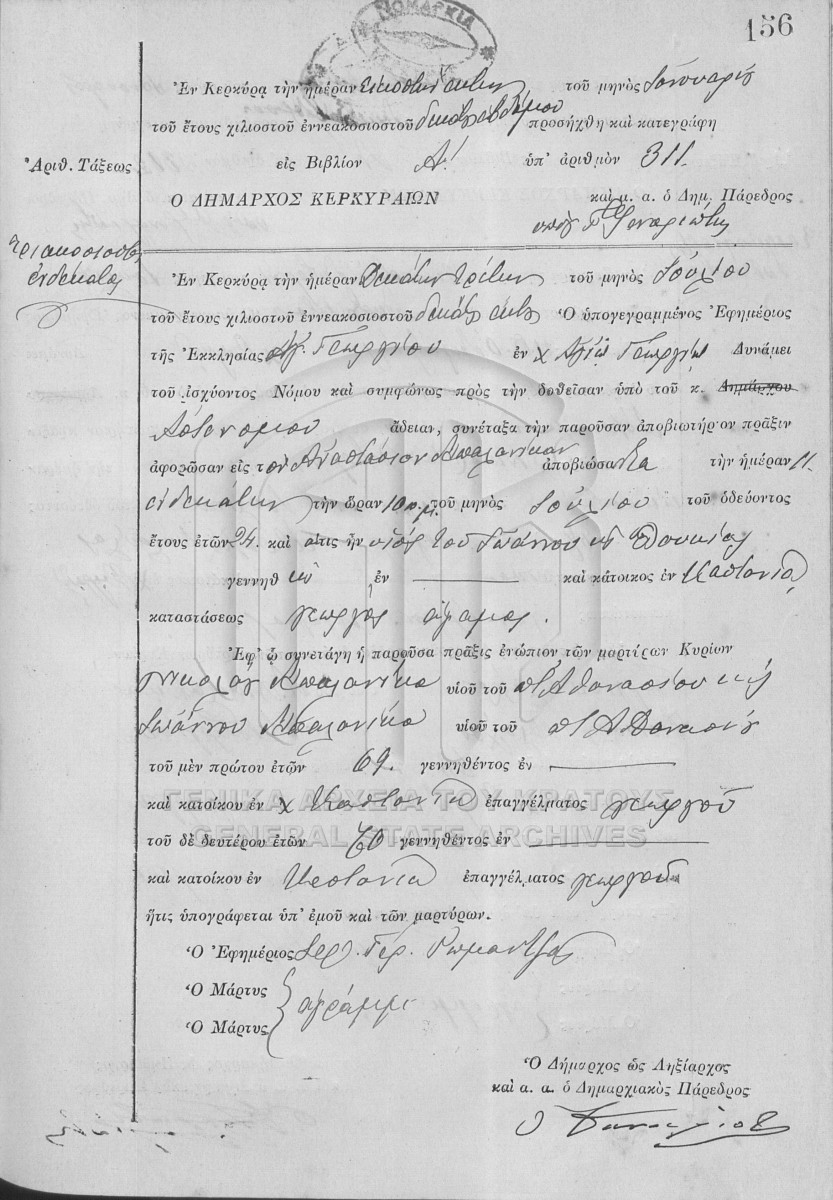 156
ΝΟΜΑΡΧΙΑ
Ἐν Κερκύρᾳ τὴν ἡμέραν εἰκοστὴν ἕκτην τοῦ μηνὸς Ἰανουαρίου
τοῦ ἔτους χιλιοστοῦ ἐννεακοσιοστοῦ δεκάτου ἑβδόμου προσήχθη καὶ κατεγράφη
Ἀριθ. Τάξεως
εἰς Βιβλίον Α! ὑπ' ἀριθμὸν 311.
Ο ΔΗΜΑΡΧΟΣ ΚΕΡΚΥΡΑΙΩΝ καὶ α. α. ὁ Δημ. Πάρεδρος
τριακοσιοστὸς
ἑνδέκατος
Ἐν Κερκύρᾳ τὴν ἡμέραν Δεκάτην τρίτην τοῦ μηνὸς Ἰουλίου
τοῦ ἔτους χιλιοστοῦ ἐννεακοσιοστοῦ δεκάτου ἕκτου Ὁ ὑπογεγραμμένος Ἐφημέριος
τῆς Ἐκκλησίας Ἁγ. Γεωργίου ἐν χ Ἁγίῳ Γεωργίῳ Δυνάμει
τοῦ ἰσχύοντος Νόμου καὶ συμφώνως πρὸς τὴν δοθεῖσαν ὑπὸ τοῦ κ. Δημάρχου
Ἀστυνόμου ἄδειαν, συνέταξα τὴν παροῦσαν ἀποβιωτήριον πρᾶξιν
ἀφορῶσαν εἰς τὸν Ἀναστάσιον Μπαλανίκαν ἀποβιώσαντα τὴν ἡμέραν 11.
ἑνδεκάτην τὴν ὥραν 10 π.μ. τοῦ μηνὸς Ἰουλίου τοῦ ὁδεύοντος
ἔτους ἐτῶν 24. καὶ ὅστις ἦν υἱὸς τοῦ Ἰωάννου κ Λουκίας
γεννηθ ἐν καὶ κάτοικος ἐν Καστανιᾷ
καταστάσεως γεωργὸς ἄγαμος.
Ἐφ' ᾧ συνετάγη ἡ παροῦσα πρᾶξις ἐνώπιον τῶν μαρτύρων Κυρίων
Νικολάου Μπαλανίκα υἱοῦ τοῦ π. Ἀθανασίου καὶ
Ἰωάννου Μπαλανίκα υἱοῦ τοῦ π. Ἀθανασίου
τοῦ μὲν πρώτου ἐτῶν 69. γεννηθέντος ἐν
καὶ κατοίκου ἐν χ Καστανιᾷ ἐπαγγέλματος γεωργοῦ
τοῦ δὲ δευτέρου ἐτῶν 60 γεννηθέντος ἐν
καὶ κατοίκου ἐν Καστανιᾷ ἐπαγγέλματος γεωργοῦ
ἥτις ὑπογράφεται ὑπ' ἐμοῦ καὶ τῶν μαρτύρων.
Ὁ Ἐφημέριος Ἱερ. Γερ.
Ὁ Μάρτυς
ἀγράμμ.
Ὁ Μάρτυς
Ὁ Δήμαρχος ὡς Ληξίαρχος
καὶ α. α. ὁ Δημαρχιακὸς Πάρεδρος
ΓΕΝΙΚΑ ΑΡΧΕΙΑ ΤΟΥ ΚΡΑΤΟΥΣ
GENERAL STATE ARCHIVES